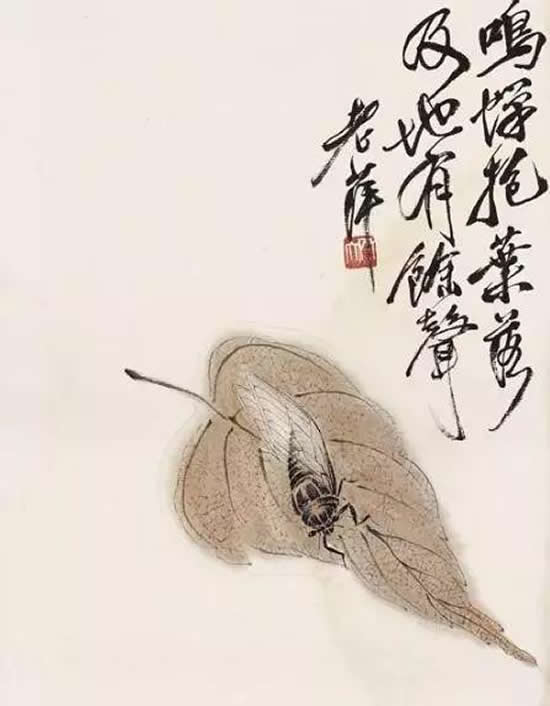 鳴蟬抱葉落
及地有餘聲
老萍